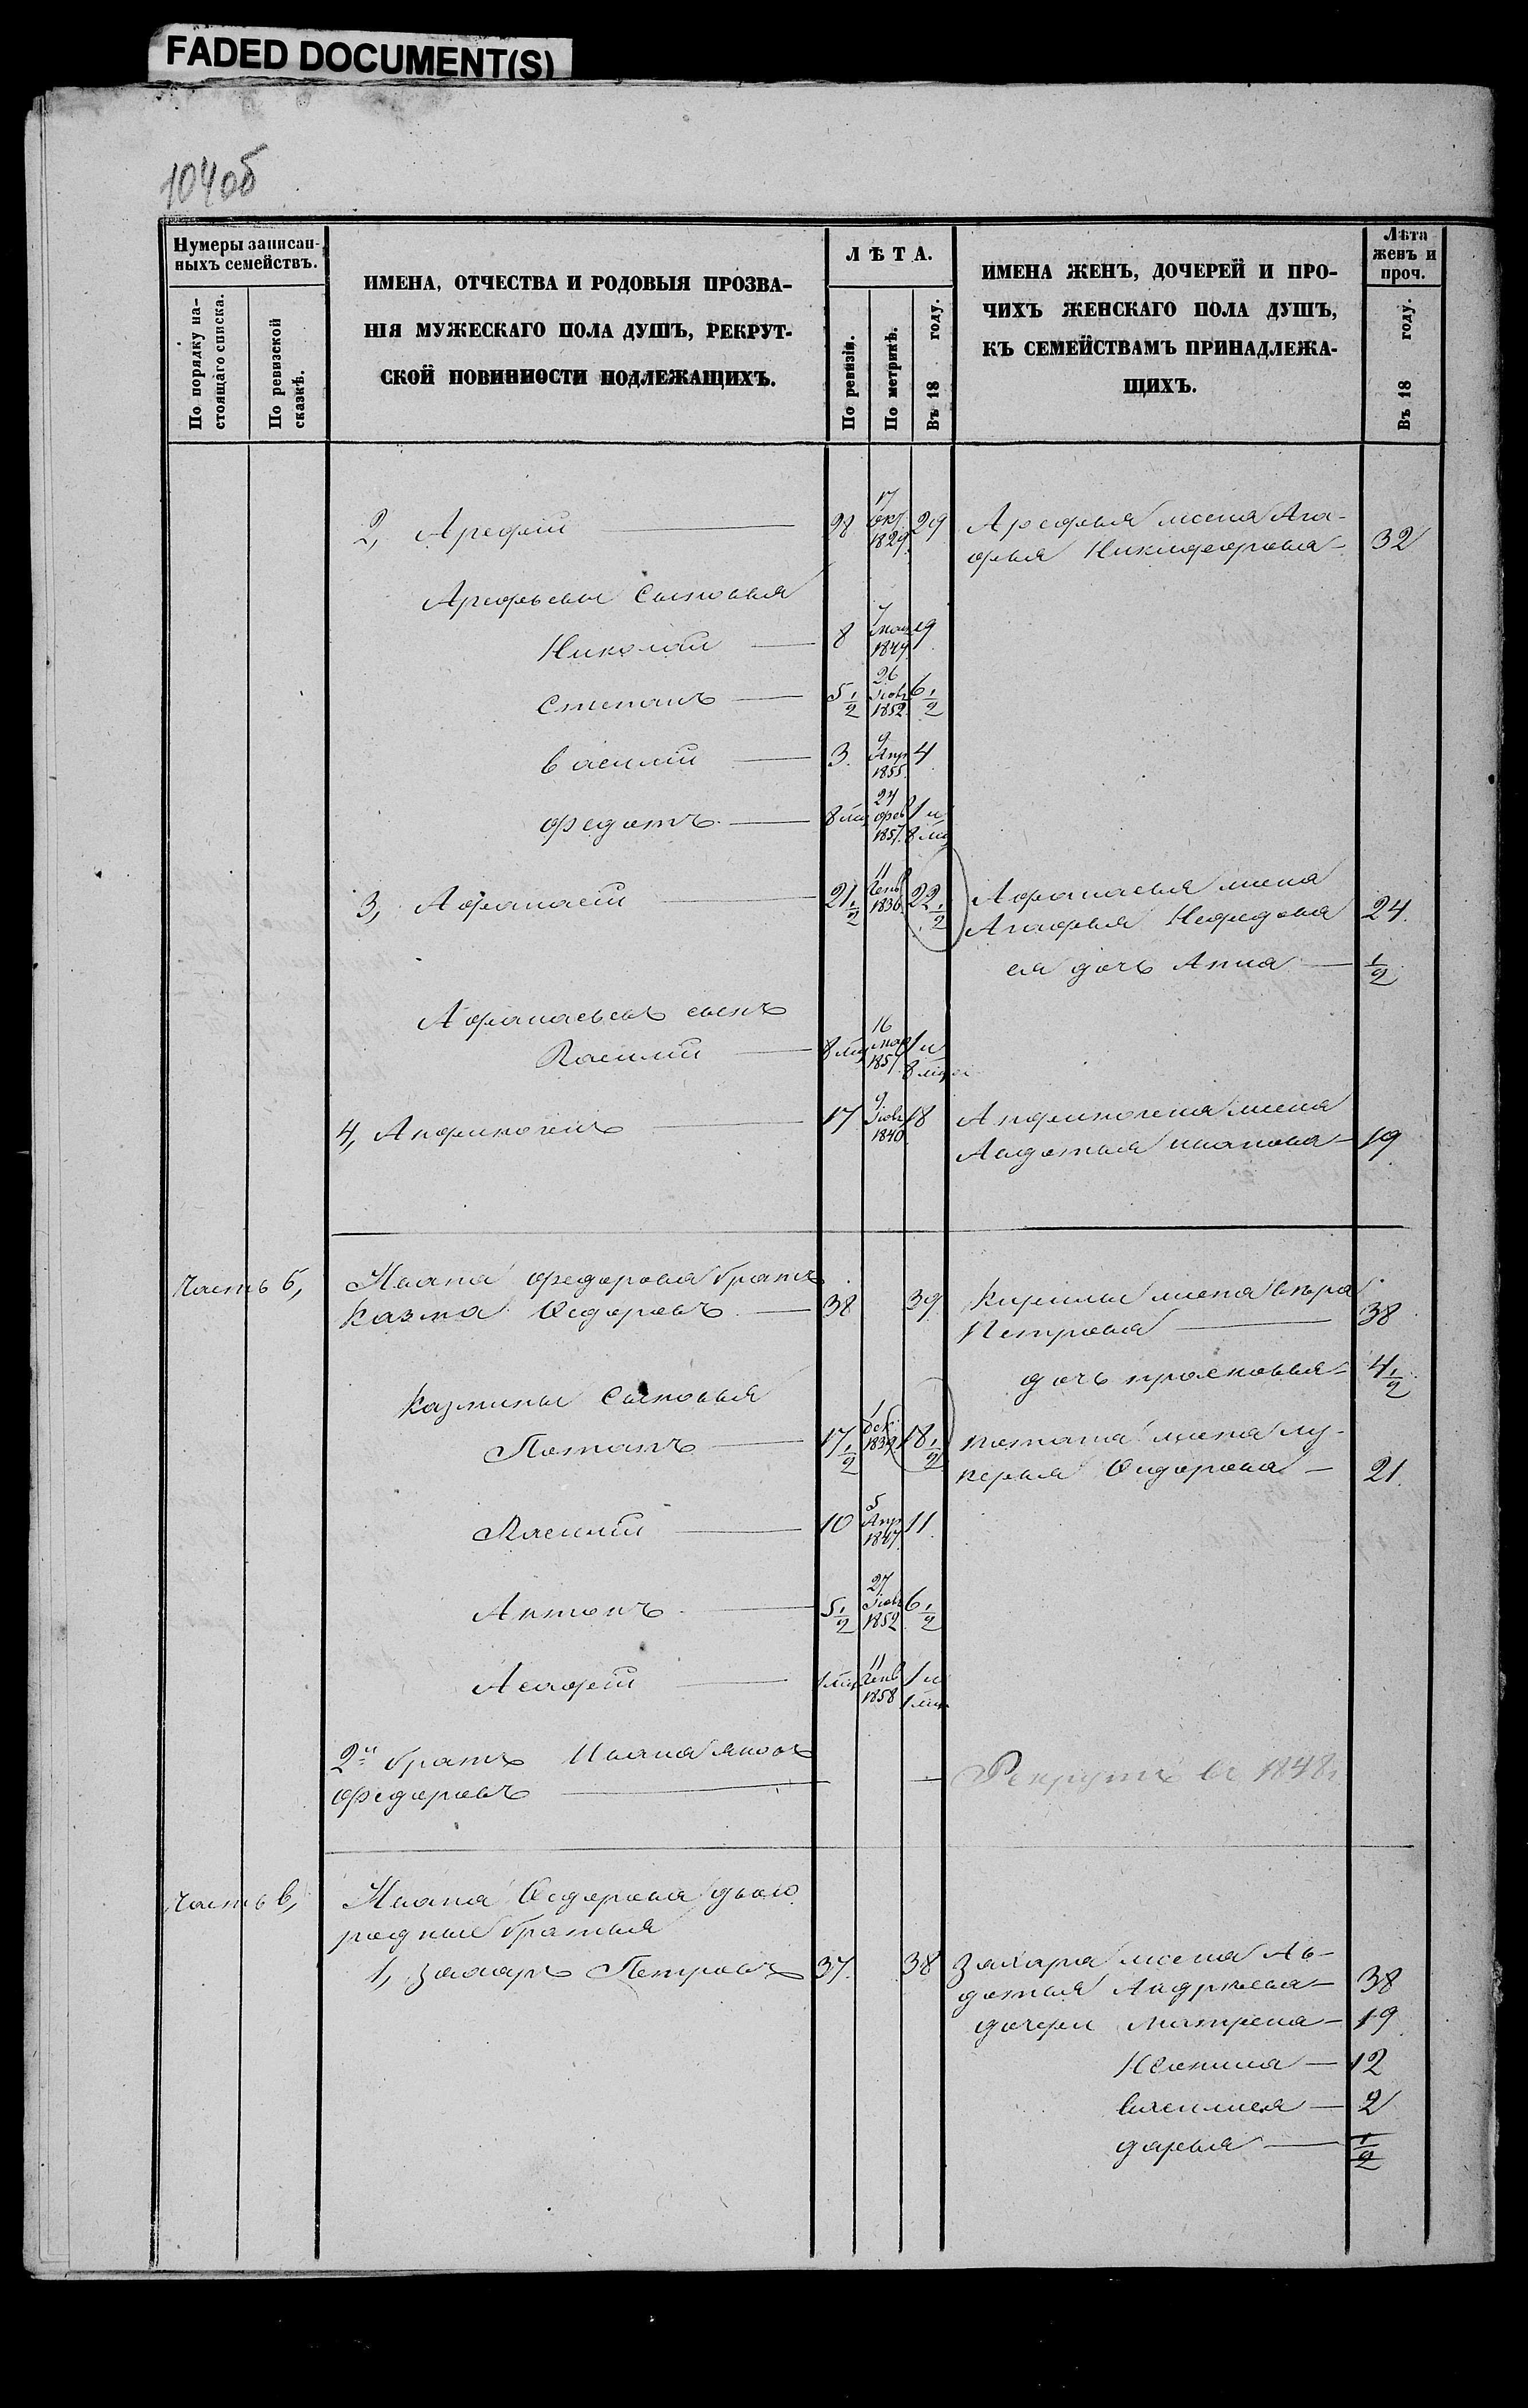 FADED DOCUMENT(S)
104об
Нумеры записан-
ныхъ семействъ.
По порядку на-
стоящаго списка.
По ревизской
сказкѣ.
ИМЕНА, ОТЧЕСТВА И РОДОВЫЯ ПРОЗВА-
НІЯ МУЖЕСКАГО ПОЛА ДУШЪ, РЕКРУТ-
СКОЙ ПОВИННОСТИ ПОДЛЕЖАЩИХЪ.
ЛѢТА.
По ревизіи.
По метрикѣ.
Въ 18 году.
ИМЕНА ЖЕНЪ, ДОЧЕРЕЙ И ПРО-
ЧИХЪ ЖЕНСКАГО ПОЛА ДУШЪ,
КЪ СЕМЕЙСТВАМЪ ПРИНАДЛЕЖА-
ЩИХЪ.
Лѣта
женъ и
проч.
Въ 18 году.
2, Арефій 28 17 Окт. 1829. 29 Арефья жена Ага-
фья Никифорова 32
Арефьевы сыновья
Николай 8 7 мая 1849. 9
Степанъ 5 1/2 26 Іюль 1852. 6 1/2
Василій 3. 9 Апр 1855. 4
Федотъ 8 мц 24 фев 1857. 1 и 8 мц
3, Афанасій 21 1/2 11 Генв 1836. 22 1/2 Афанасья жена
Агафья Нефедова 24.
ея дочь Анна 1/2
Афанасьевъ сынъ
Василій 8 мц 16 мар 1857 1 и 8 мц
4, Анфиногенъ 17 9. Іюль 1840. 18 Анфиногена жена
Авдотья иванова 19
Часть б, Ивана федорова братъ
Казма Федоровъ 38 39 жена Вѣра
Петрова 38
дочь прасковья 4 1/2
Казмины сыновья
Потапъ 17 1/2 1 Дек. 1839 18 1/2 потапа жена лу-
керья Федорова 21.
Василій 10 5 Апр 1847. 11.
Антонъ 5 1/2 27 Іюль 1852 6 1/2
Асафей 1 мц 11 Генв 1858 1 и 1 мц
2й братъ Ивана яковъ
федоровъ Рекрутъ въ 1848г
Часть в, Ивана Федорова двою
родные братья
1, Захаръ Петровъ 37. 38 Захара жена Ав-
дотья Андреева 38
дочери Матрена 19
12
василиса 2
дарья 1/2